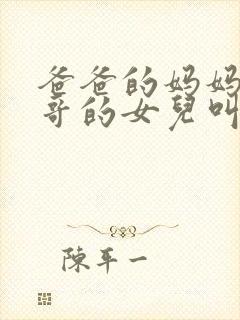 爸爸的妈妈
哥的女兒叫
陳平一